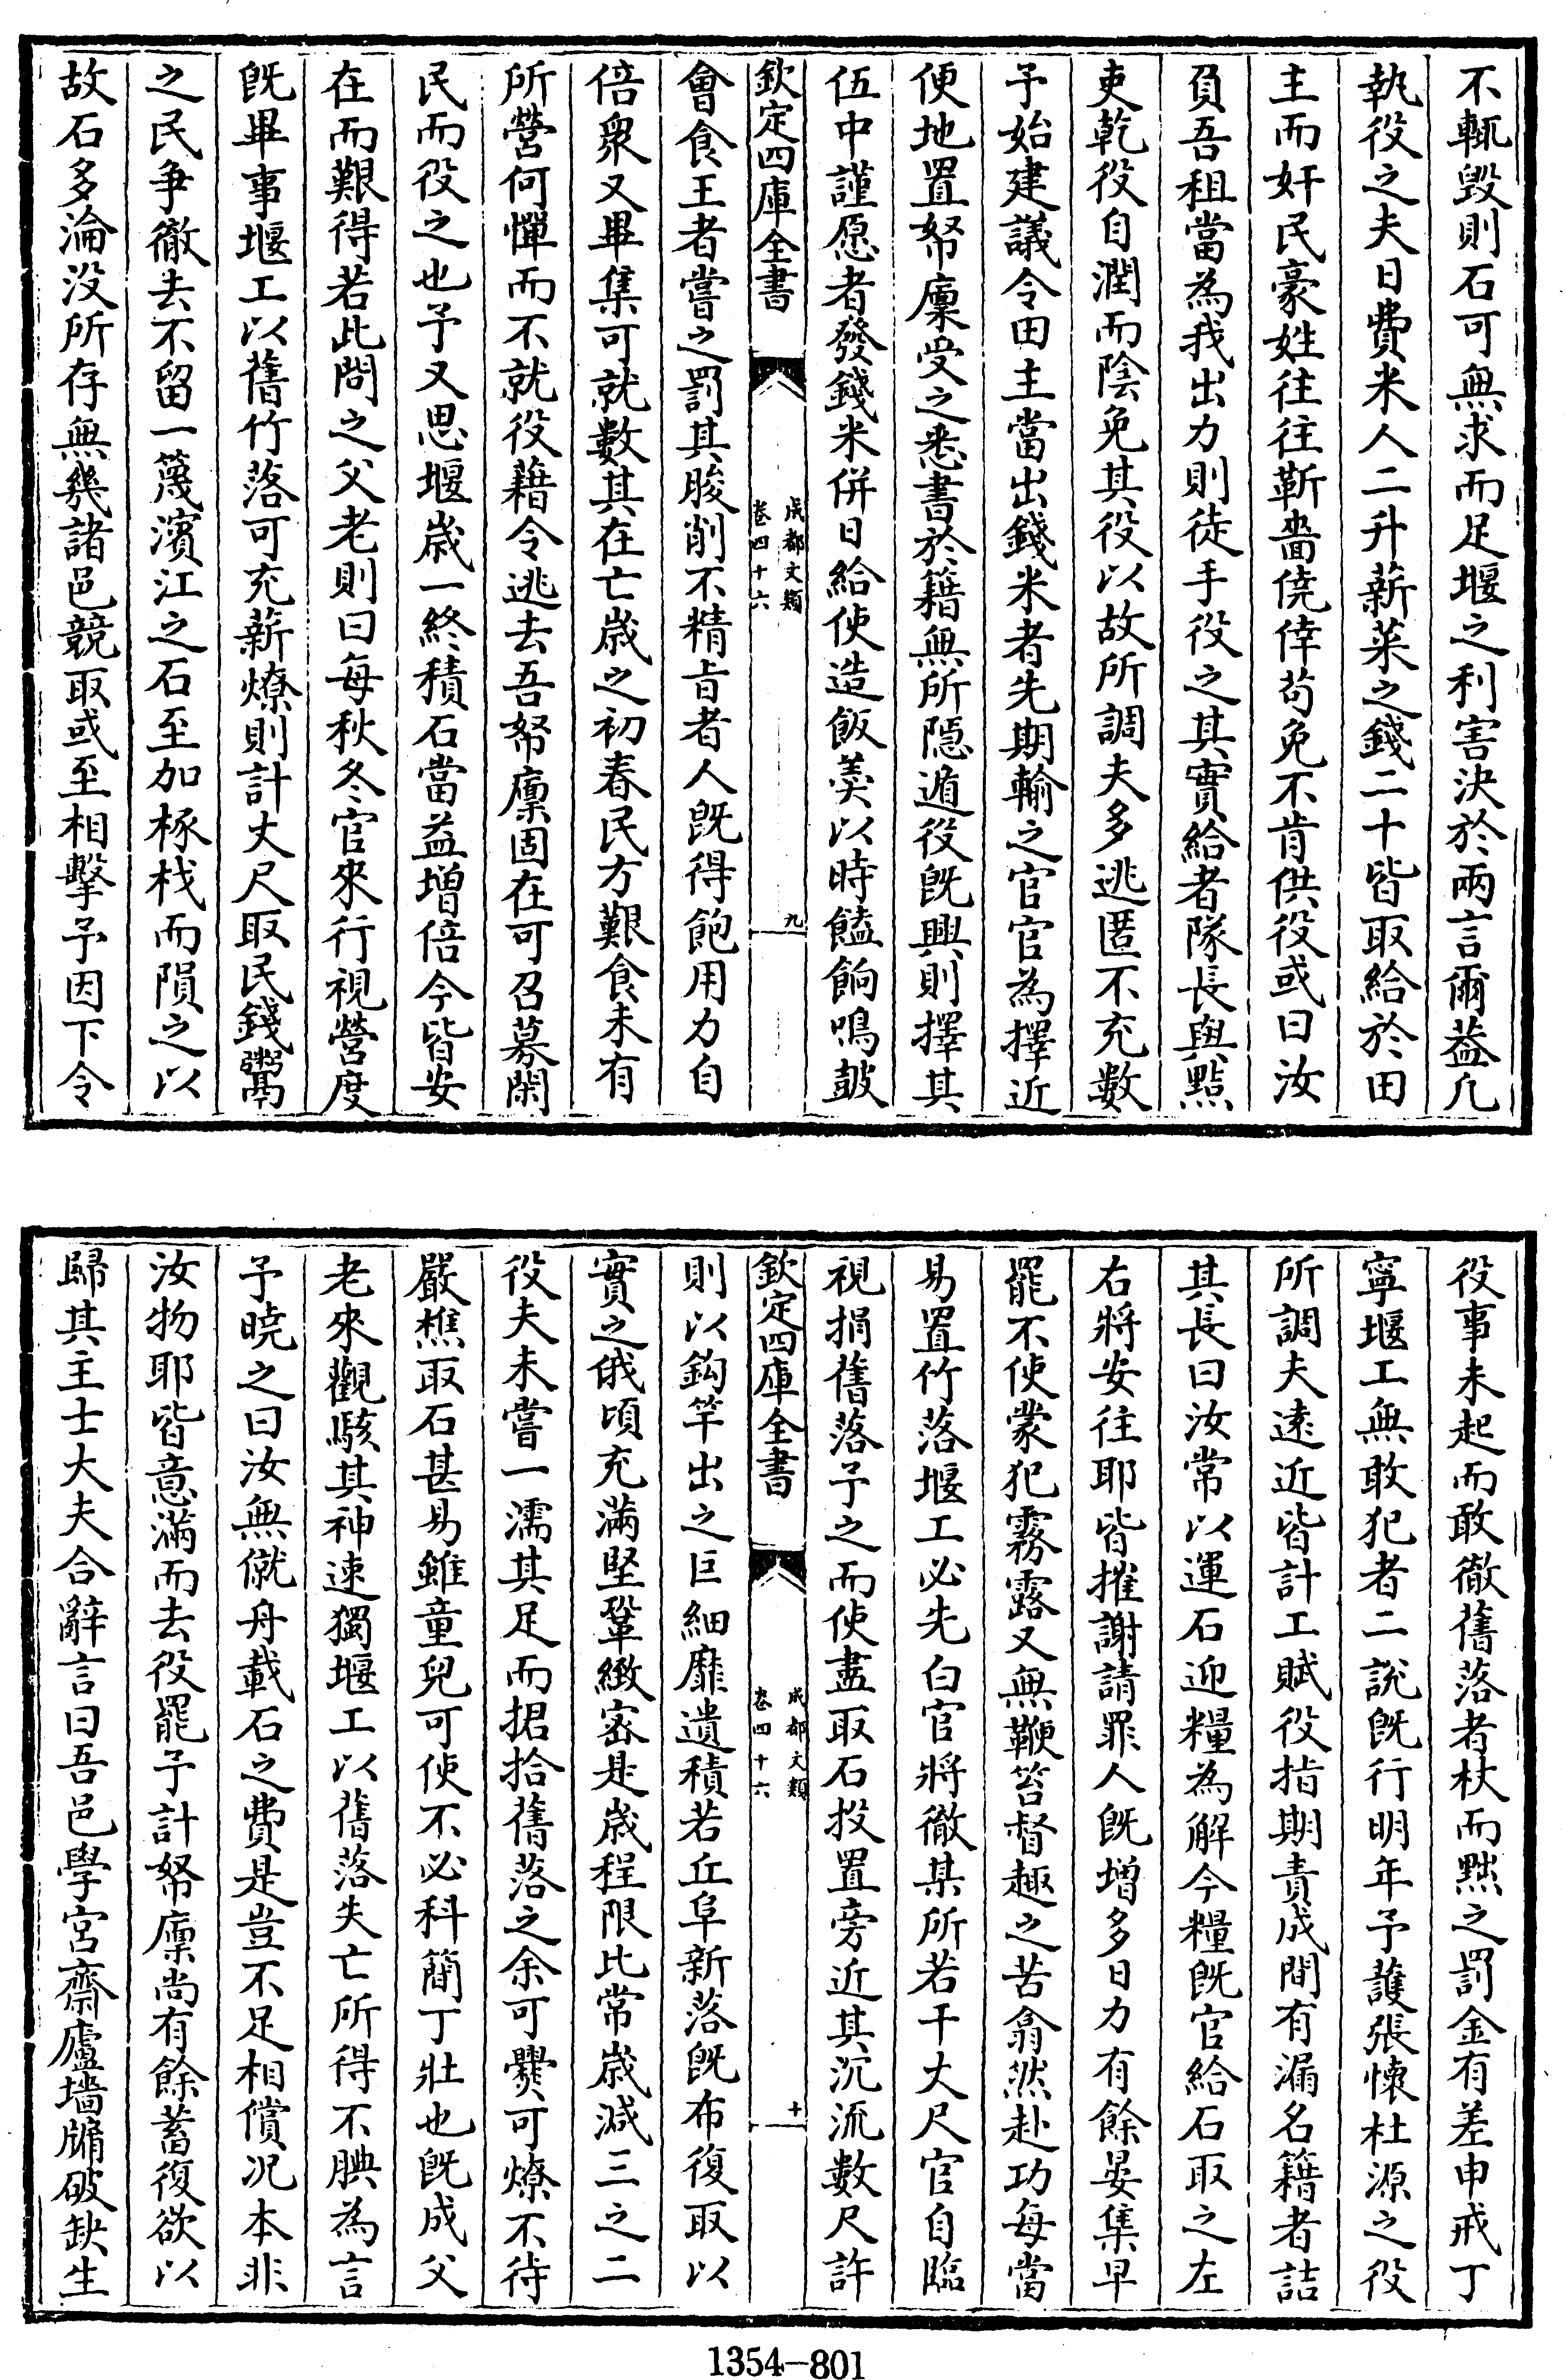 不輒毀則石可無求而足堰之利害決於兩言爾葢凡
執役之夫日費米人二升薪菜之錢二十皆取給於田
主而奸民豪姓往往靳嗇僥倖苟免不肯供役或曰汝
負吾租當為我出力則徒手役之其實給者隊長與㸃
吏乾役自潤而陰免其役以故所調夫多逃匿不充數
予始建議令田主當出錢米者先期輸之官官為擇近
便地置帑廩受之悉書於籍無所隱遁役既興則擇其
伍中謹愿者發錢米併日給使造飯羮以時饁餉鳴鼓
欽定四庫全書
成都文類
卷四十六
九
會食王者嘗之罰其朘削不精旨者人既得飽用力自
倍衆又畢集可就數其在亡歲之初春民方艱食未有
所營何憚而不就役藉令逃去吾帑廩固在可召募閑
民而役之也予又思堰歲一終積石當益增倍今皆安
在而艱得若此問之父老則曰每秋冬官來行視營度
既畢事堰工以舊竹落可充薪燎則計丈尺取民錢鬻
之民爭徹去不留一篾濱江之石至加椓杙而隕之以
故石多淪没所存無幾諸邑競取或至相擊予因下令
役事未起而敢徹舊落者杖而黥之罰金有差申戒丁
寧堰工無敢犯者二説既行明年予護張懷杜源之役
所調夫遠近皆計工賦役指期責成間有漏名籍者詰
其長曰汝常以運石迎糧為解今糧既官給石取之左
右將安往耶皆摧謝請罪人既增多日力有餘晏集早
罷不使蒙犯霧露又無鞭笞督趣之苦翕然赴功每當
易置竹落堰工必先白官將徹某所若干丈尺官自臨
視捐舊落予之而使盡取石投置旁近其沉流數尺許
欽定四庫全書
成都文類
卷四十六
十
則以鈎竿出之巨細靡遺積若丘阜新落既布復取以
實之俄頃充滿堅鞏緻密是歲程限比常歲減三之二
役夫未嘗一濡其足而捃拾舊落之余可爨可燎不待
嚴樵取石甚易雖童兒可使不必科簡丁壯也既成父
老來觀駭其神速獨堰工以舊落失亡所得不腆為言
予曉之曰汝無僦舟載石之費是豈不足相償况本非
汝物耶皆意滿而去役罷予計帑廩尚有餘蓄復欲以
歸其主士大夫合辭言曰吾邑學宮齋廬墻牖破缺生
1354-801